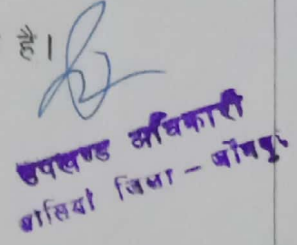 है।
उपखण्ड अधिकारी
ओसियां जिला - जोधपुर